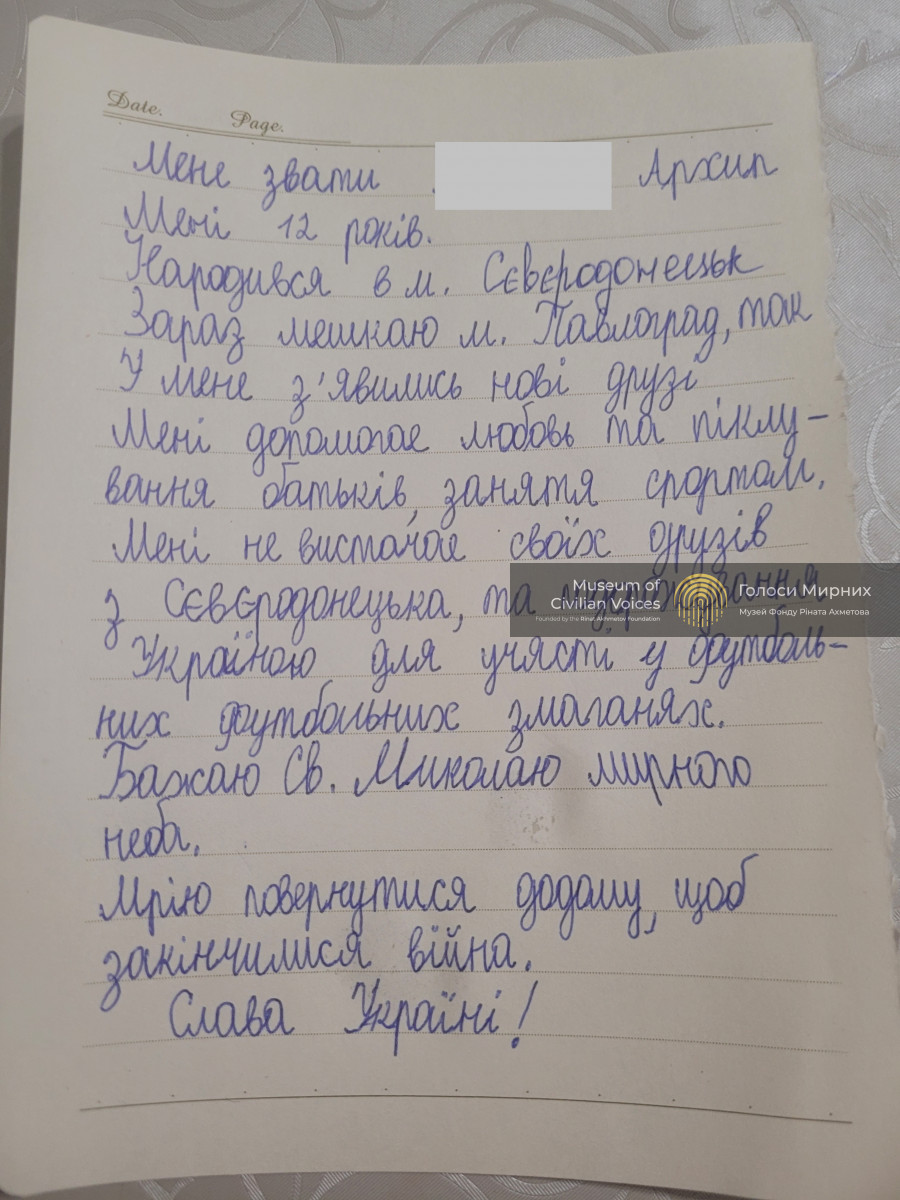 Date. Page.
Мене звати Архип
Мені 12 років.
Народився в м. Сєвєродонецьк
Зараз мешкаю м. Павлоград, так
У мене з'явились нові друзі
Мені допомогає любовь та піклу-
вання батьків, заняття спортом.
Мені не вистачає своїх друзів
з Сєвєродонецька, та
Museum of Civilian Voices
Founded by the Rinat Akhmetov Foundation
Голоси Мирних
Музей Фонду Ріната Ахметова
Україною для участі у футболь-
них футбольних змаганях.
Бажаю Св. Миколаю мирного
неба.
Мрію повернутися додому, щоб
закінчилися війна.
Слава Україні!